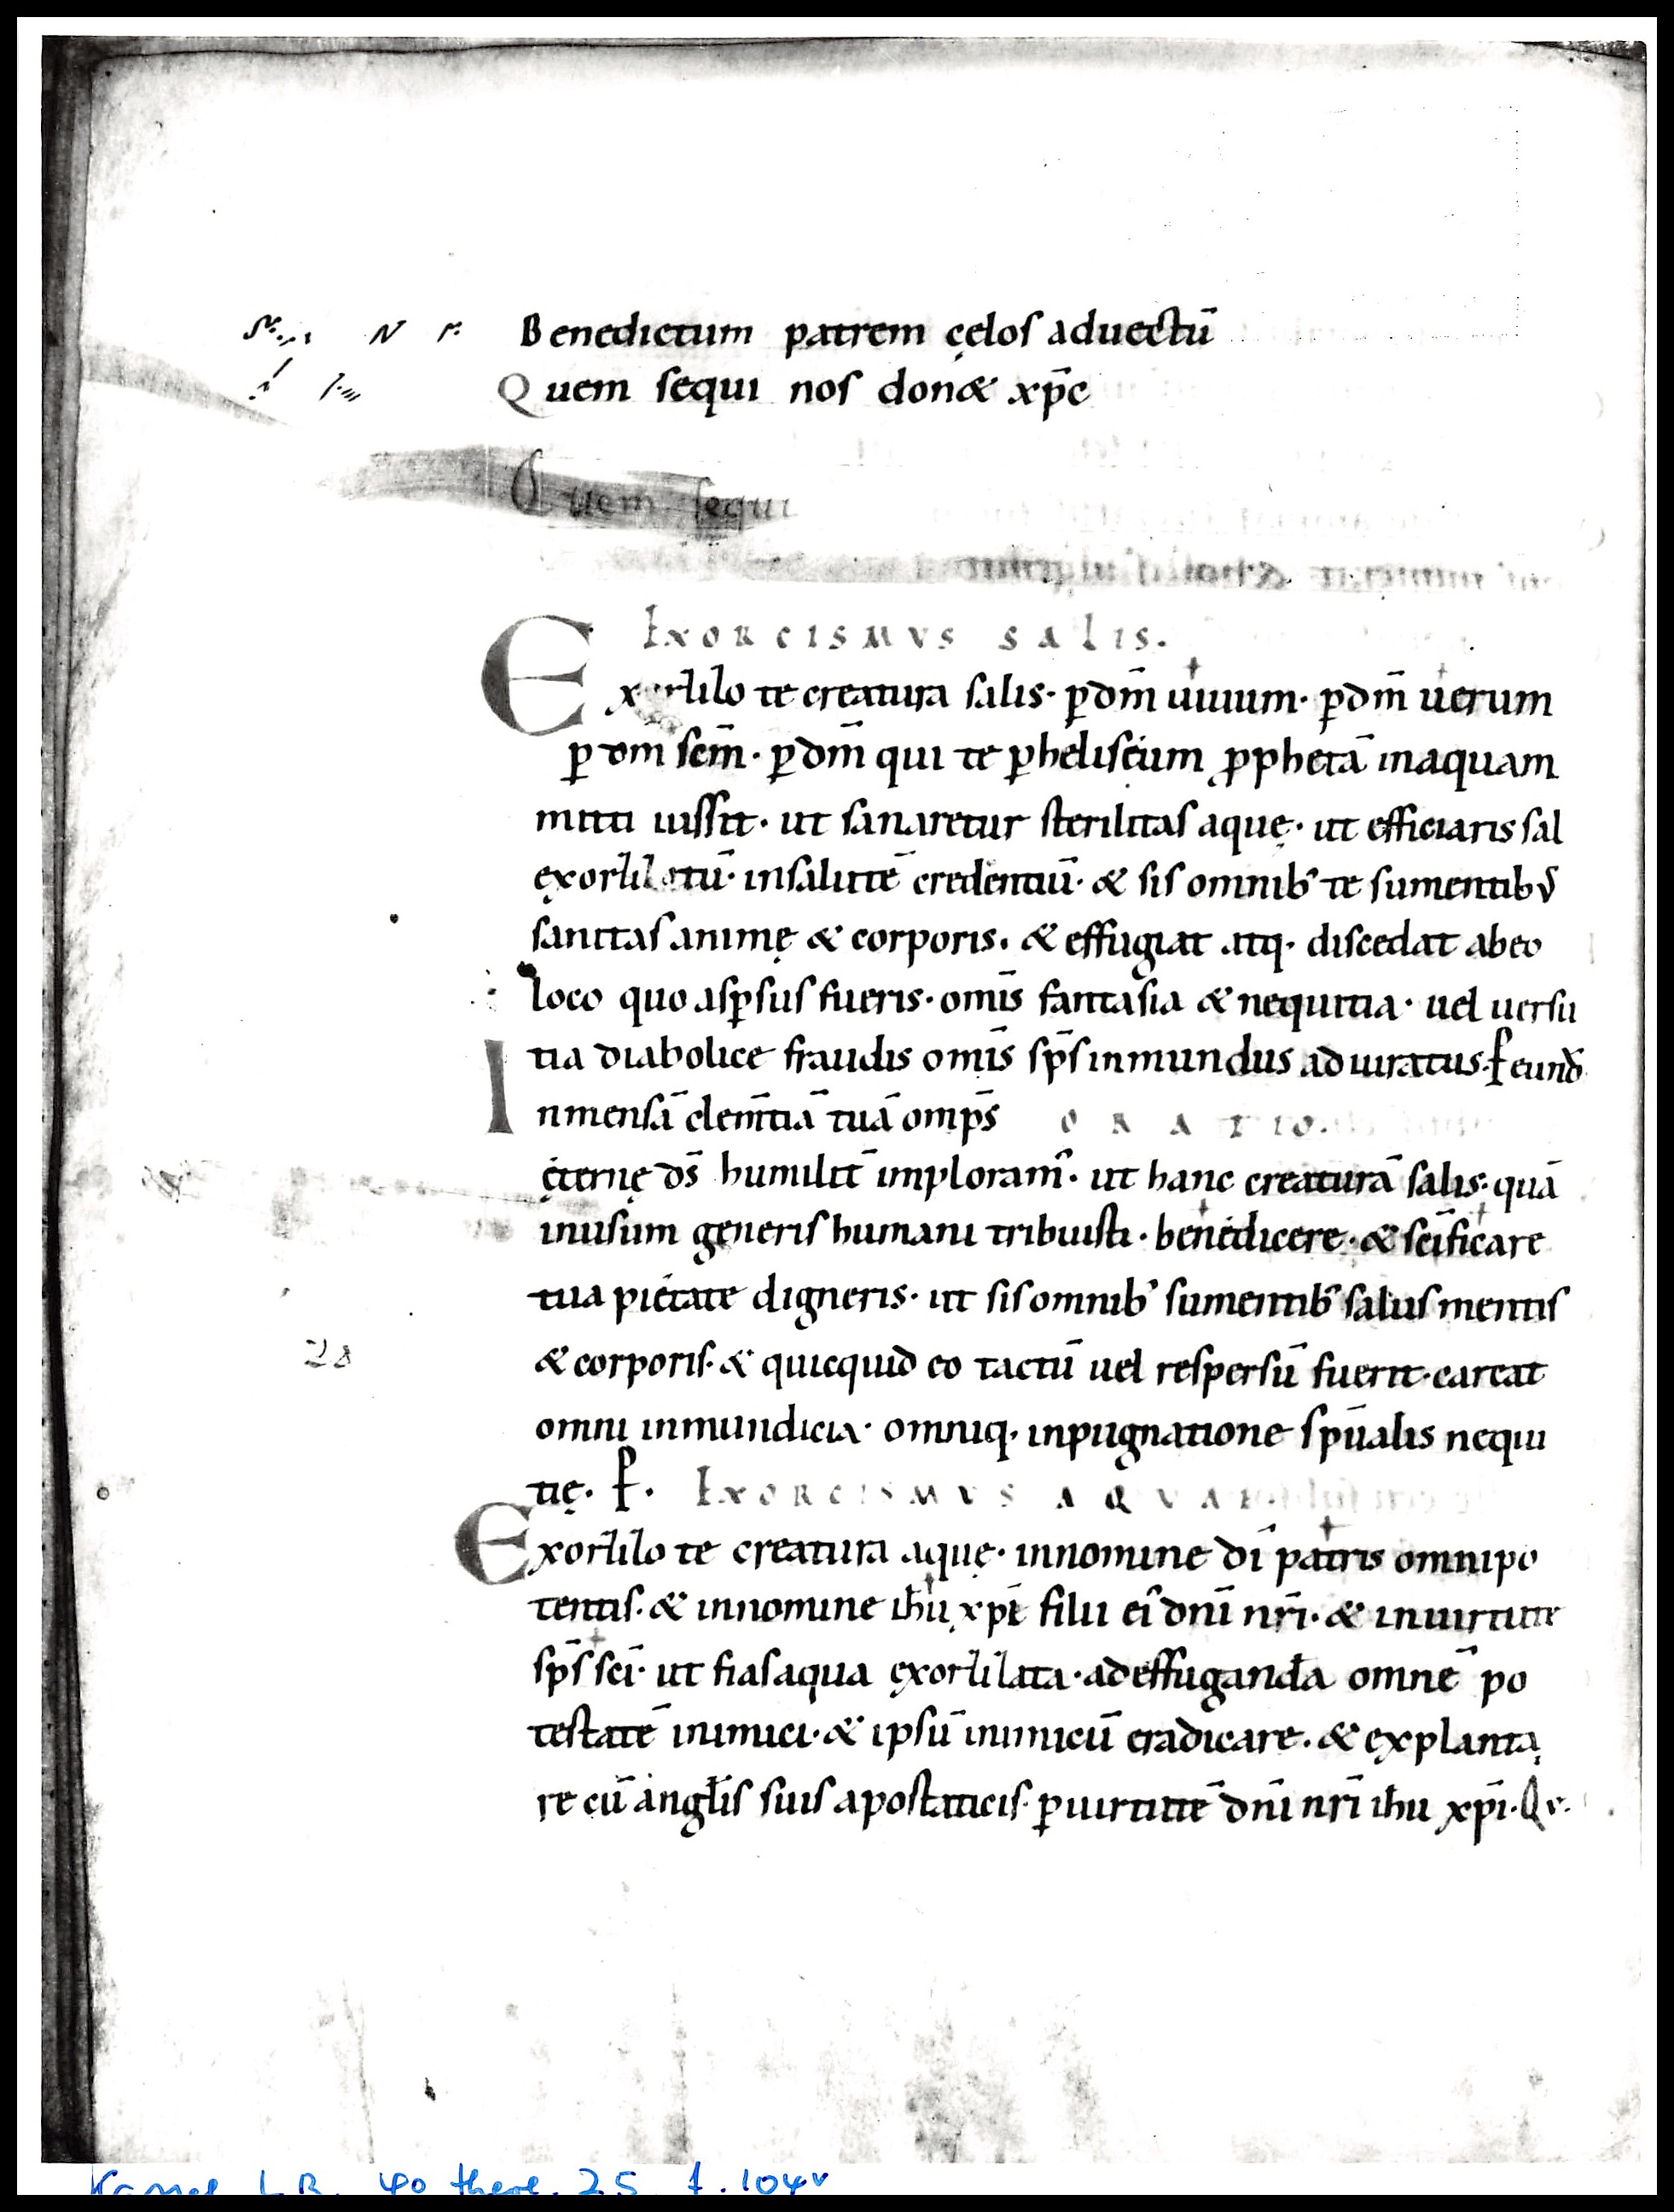 Benedictum patrem cęlos aduectū
Quem sequi nos donet xp̄c
Quem sequi
Exorcismus salis.
Exorcizo te creatura salis· p̱ dm̄ uiuum· p̱ dm̄ uerum
p̱ dm̄ scm̄· p̱ dm̄ qui te p̱ heliseum ꝓphetā in aquam
mitti iussit· ut sanaretur sterilitas aquę· ut efficiaris sal
exorcizatū· in salutē credentiū· & sis omnib' te sumentibus
sanitas animę & corporis· & effugiat atq· discedat ab eo
loco quo asp̱sus fueris· om̄is fantasia & nequitia· uel uersu
tia diabolice fraudis om̄is sp̄s inmundus adiuratus· P eund̄
Inmensā clem̄tiā tuā omp̄s ORATIO.
ęternę ds̄ humilit̄ imploram'· ut hanc creaturā salis· quā
in usum generis humani tribuisti· benedicere· & sc̄ificare
tua pietate digneris· ut sis omnib' sumentib' salus mentis
& corporis· & quicquid eo tactū uel respersū fuerit· careat
omni inmundicia· omniq· inpugnatione sp̄ualis nequi
tię· P· Exorcismus aquae.
Exorcizo te creatura aquę· in nomine dī patris omnipo
tentis· & in nomine ihū xp̄i filii ei' dn̄i nr̄i· & in uirtute
sp̄s sc̄i· ut fias aqua exorcizata· ad effuganda omnē po
testatē inimici· & ipsū inimicū eradicare· & explanta
re cū angłis suis apostaticis· p̱ uirtutē dn̄i nr̄i ihu xp̄i· Q
28
LB. 4o theol. 25 f. 104v